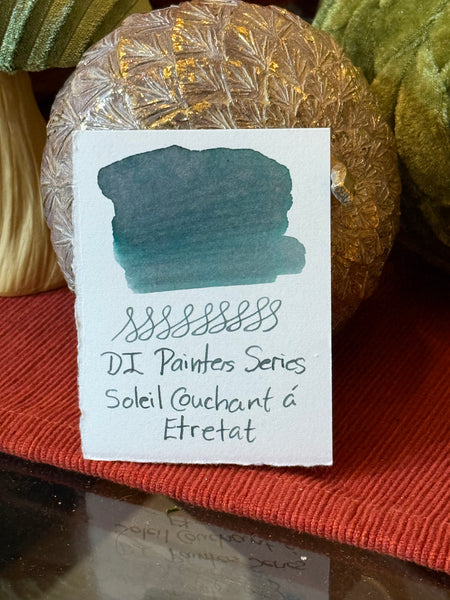 DI Painters Series
Soleil Couchant á
Etretat